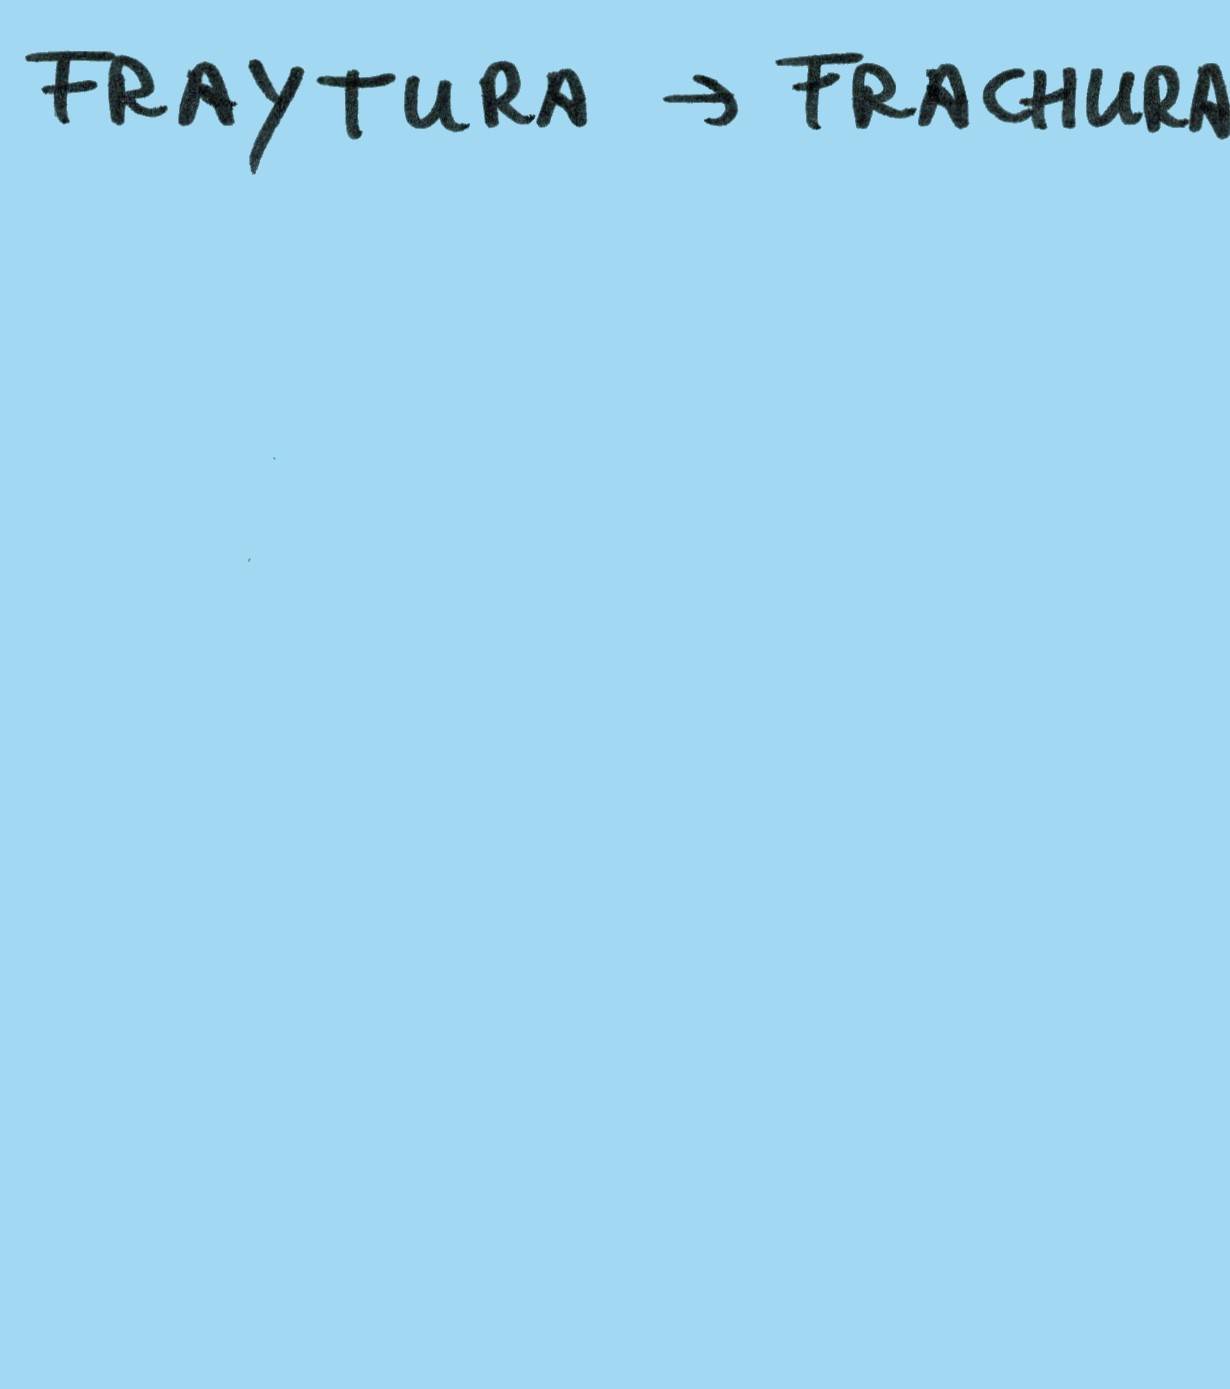 FRAYTURA → FRACHURA